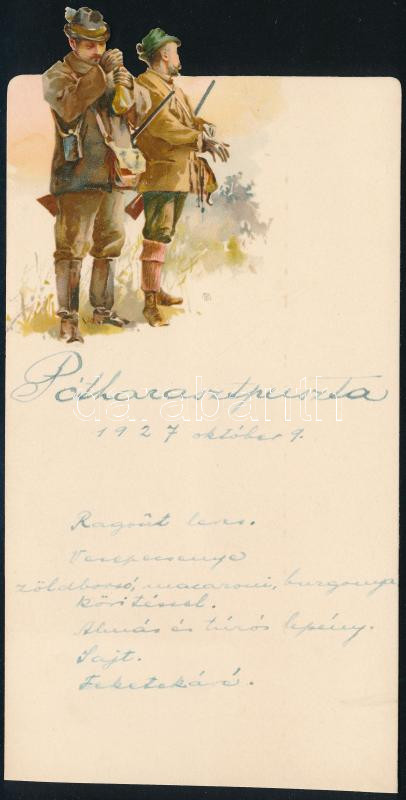 Pótharasztpuszta
1927 október 9.
Ragoût leves.
Vesepecsenye
zöldborsó, macaroni, burgonya
körítéssel.
Almás és túrós lepény.
Sajt.
Feketekávé.